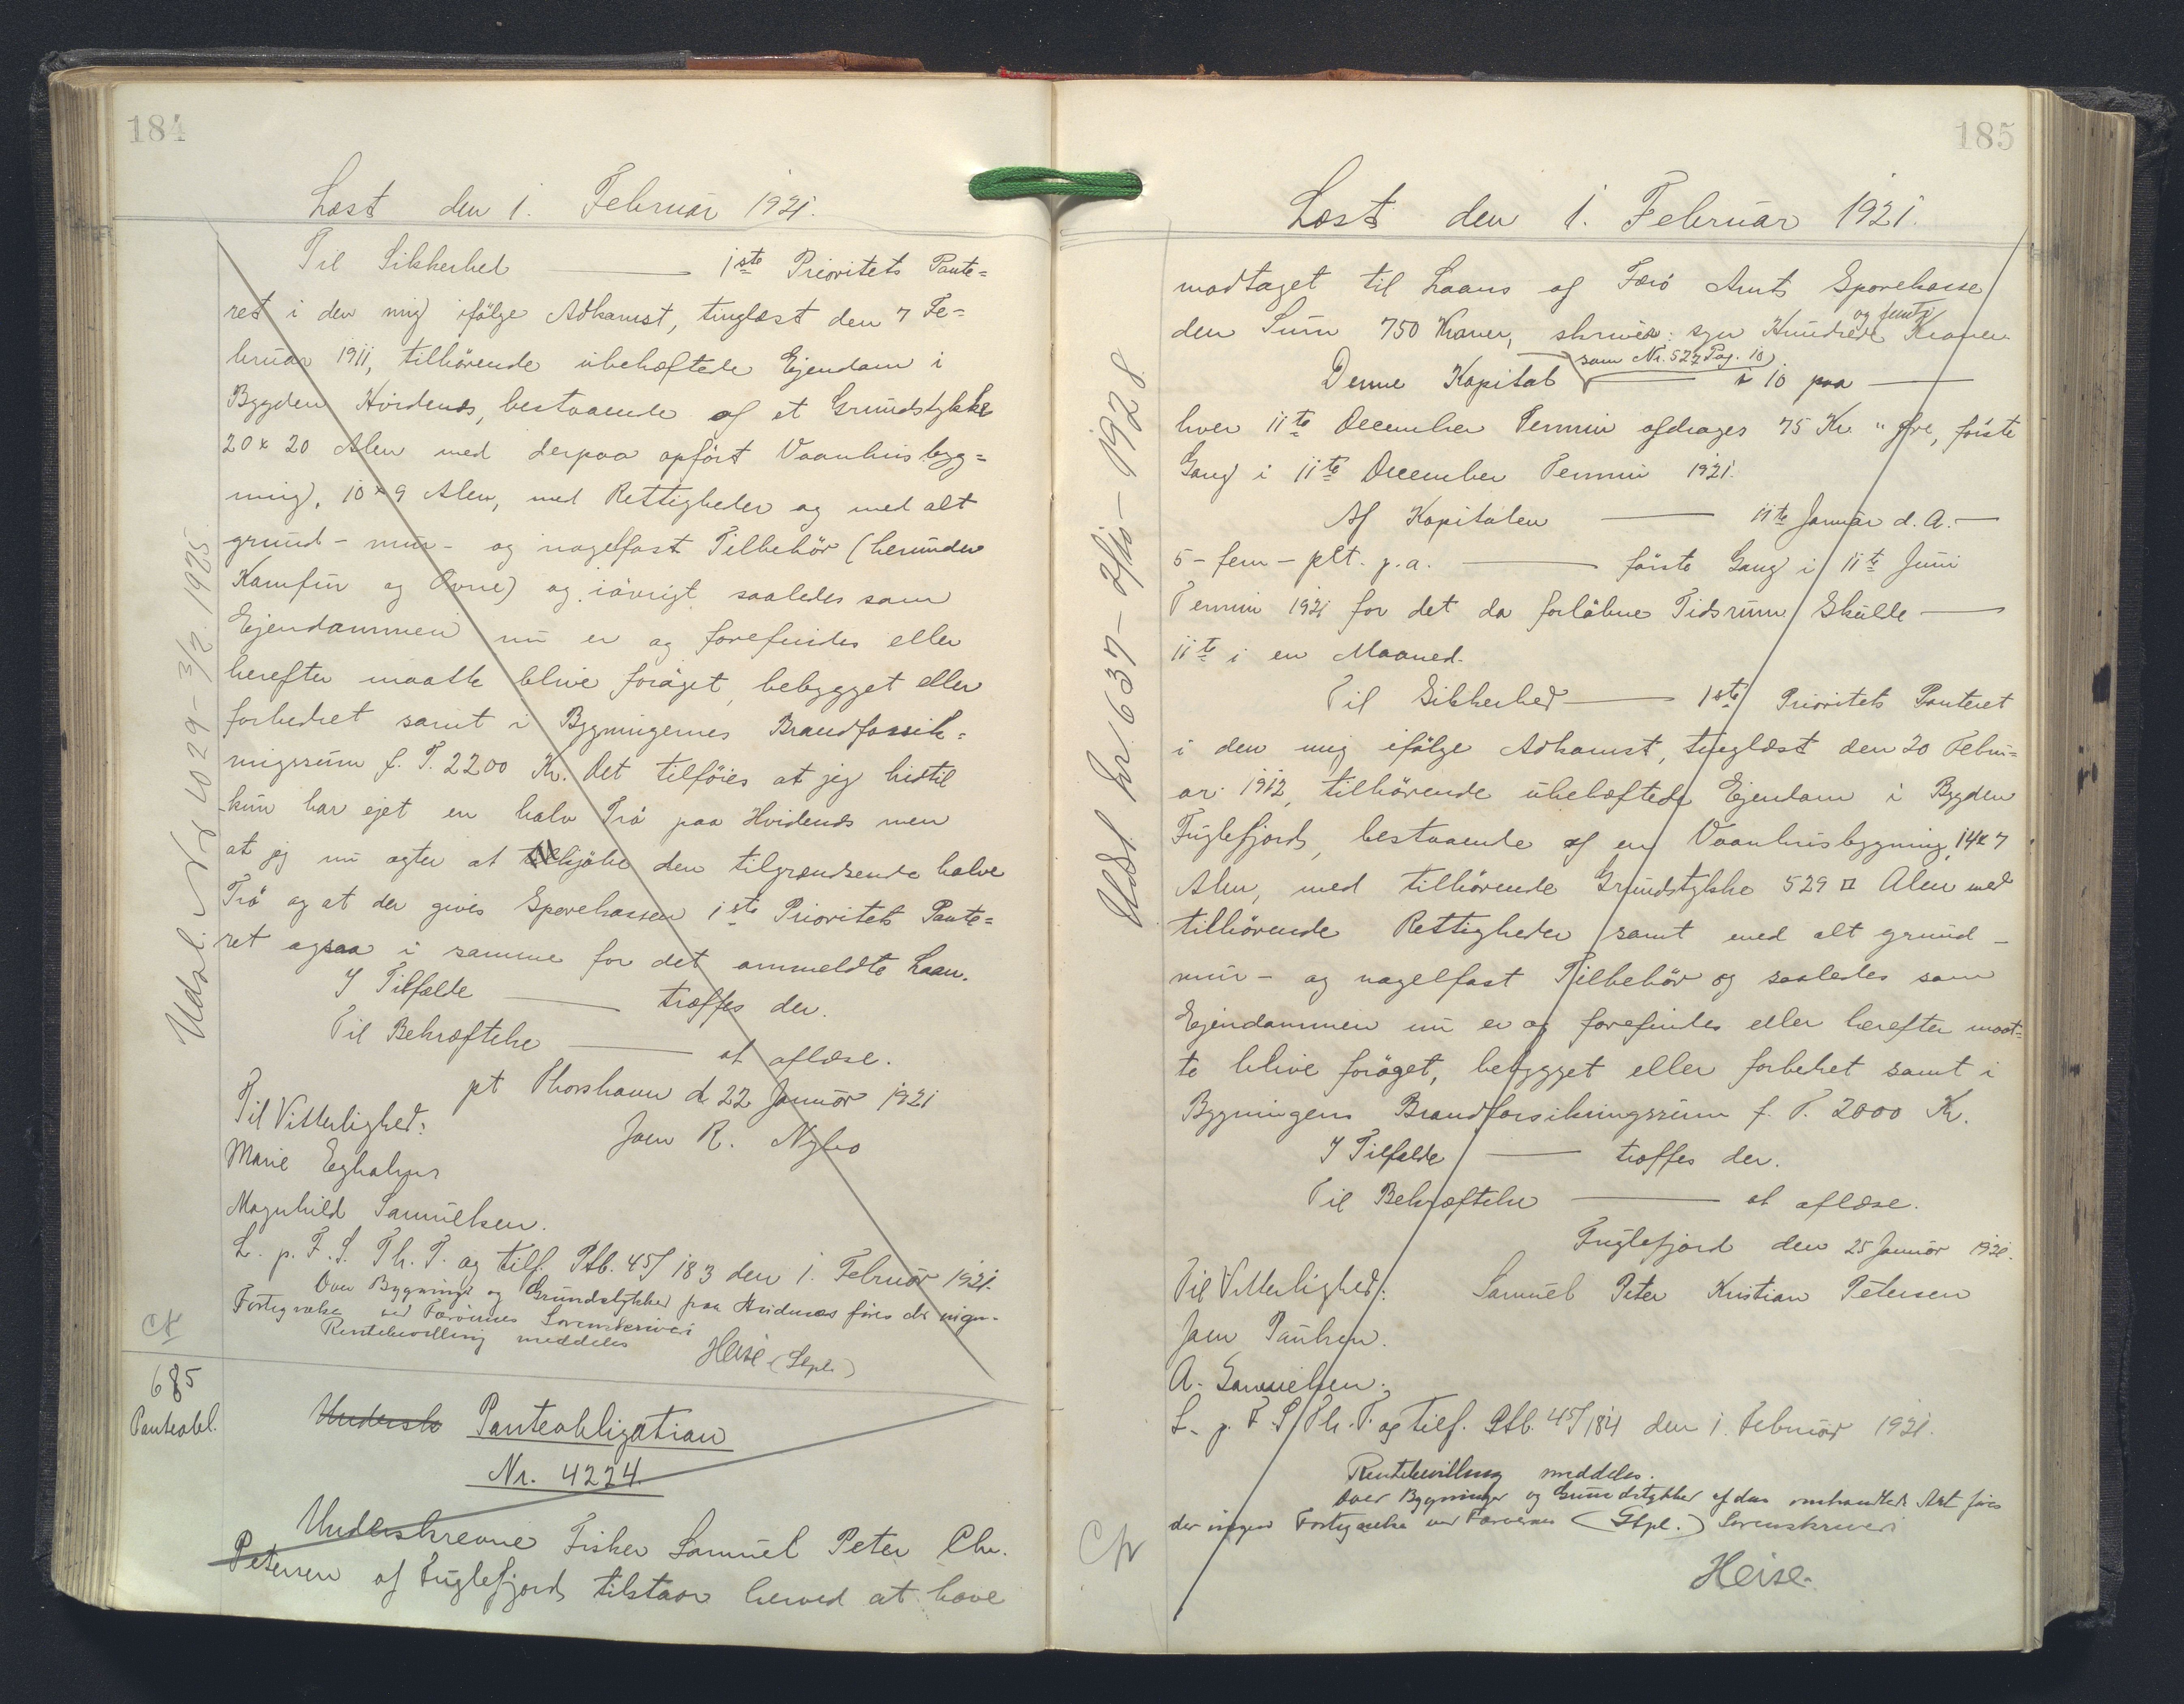 184
Læst den 1. Februar 1921.
Til Sikkerhed — 1ste Prioritets Pante=
ret i den mig ifølge Adkomst, tinglæst den 7 Fe=
bruar 1911, tilhörende ubehæftede Ejendom i
Bygden Hvidenæs, bestaaende af et Grundstykke
20 x 20 Alen med derpaa opfört Vaanhusbyg=
ning, 10 x 9 Alen, med Rettigheder og med alt
grund- mur- og nagelfast Tilbehör (herunder
Komfur og Ovne) og iövrigt saaledes som
Ejendommen nu er og forefindes eller
herefter maatte blive foröget, bebygget eller
forbedret samt i Bygningernes Brandforsik=
ringssum f. T. 2200 Kr. Det tilföies at jeg hidtil
kun har ejet en halv Trö paa Hvidenæs men
at jeg nu agter at tilkjöbe den tilgrændsende halve
Trö og at der gives Sparekassen 1ste Prioritets Pante=
ret ogsaa i samme for det ommeldte Laan.
I Tilfælde — træffes der.
Til Bekræftelse — at aflæse.
pt Thorshavn d. 22 Januar 1921
Til Vitterlighed:
Joen R. Nybo
Marie
Magnhild Samuelsen.
L. p. F. S. Th. T. og tilf. Ptb. 45/183 den 1. Februar 1921.
Over Bygninger og Grundstykker paa Hvidenæs föres der ingen
Fortegnelse ved Færöernes Sorenskriveri
Rentebevilling meddeles
Heise (Stpl.)
Udsl. Nr 1029 - 3/2. 1925.
685
Panteobl.
Undersk Panteobligation
Nr. 4224
Underskrevne Fisker Samuel Peter Chr.
Petersen af Fuglefjord tilstaar herved at have
185
Læst den 1. Februar 1921.
modtaget til Laans af Færö Amts Sparekasse
den Sum 750 Kroner, skriver: syv Hundrede og femti Kroner
Denne Kapital — som Nr. 522 Pag. 10 — i 10 paa —
hver 11te December Termin afdrages 75 Kr. " Øre, förste
Gang i 11te December Termin 1921.
Af Kapitalen — 11te Januar d. A. —
5 - fem - pCt. p. a. — förste Gang i 11te Juni
Termin 1921 for det da forløbne Tidsrum Skulde —
11te i en Maaned.
Til Sikkerhed — 1ste Prioritets Panteret
i den mig ifölge Adkomst, tinglæst den 20 Febru=
ar 1912, tilhörende ubehæftede Ejendom i Bygden
Fuglefjord, bestaaende af en Vaanhusbygning, 14 x 7
Alen, med tilhörende Grundstykke 529 □ Alen med
tilhörende Rettigheder samt med alt grund-
mur- og nagelfast Tilbehör og saaledes som
Ejendommen nu er og forefindes eller herefter maat=
te blive foröget, bebygget eller forbedret samt i
Bygningens Brandforsikringssum f. T. 2000 Kr.
I Tilfælde — træffes der.
Til Bekræftelse — at aflæse.
Fuglefjord den 25 Januar 1921.
Til Vitterlighed: Samuel Peter Kristian Petersen
Joen Paulsen.
A. Samuelsen.
L. p. F. S. Th. T. og tilf. Ptb. 45/184 den 1. Februar 1921.
Rentebevilling meddeles.
Over Bygninger og Grundstykker af den omhandlede Art föres
der ingen Fortegnelse ved Færöernes (Stpl.) Sorenskriveri
Heise.
Udsl. Nr. 637 - 1928